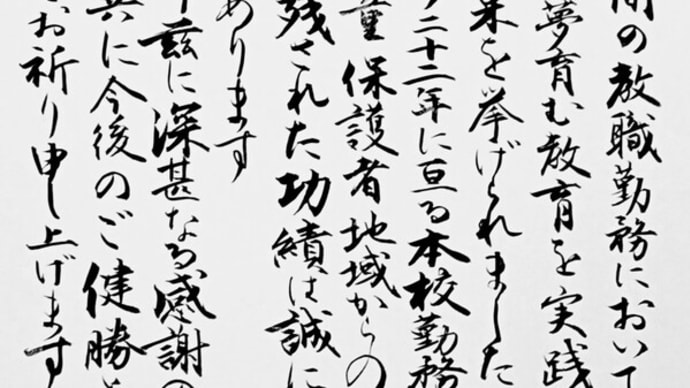 間の教職勤務において
夢育む教育を実践
を挙げられました
二十二年に亘る本校勤務
童保護者地域からの
残された功績は誠に
あります
茲に深甚なる感謝の
共に今後のご健勝
お祈り申し上げます